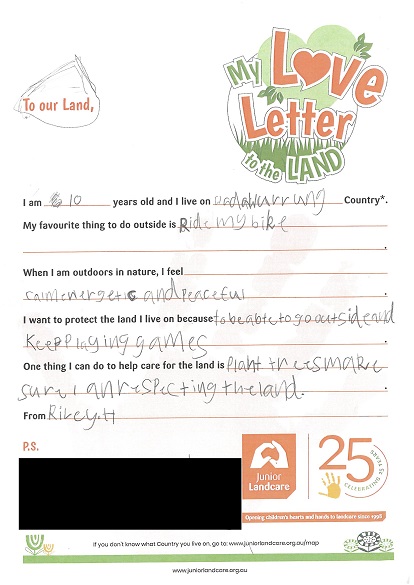 My Love Letter to the LAND
To our Land,
I am 10 years old and I live on Wadawurrung Country*.
My favourite thing to do outside is Ride my bike
.
When I am outdoors in nature, I feel
calm energetic and peaceful .
I want to protect the land I live on because to be able to go outside and
Keep playing games .
One thing I can do to help care for the land is plant trees make
sure I an respecting the land.
From Riley.H
P.S.
Junior
Landcare
25
CELEBRATING 25 YEARS
Opening children's hearts and hands to landcare since 1998
If you don't know what Country you live on, go to: www.juniorlandcare.org.au/map
www.juniorlandcare.org.au